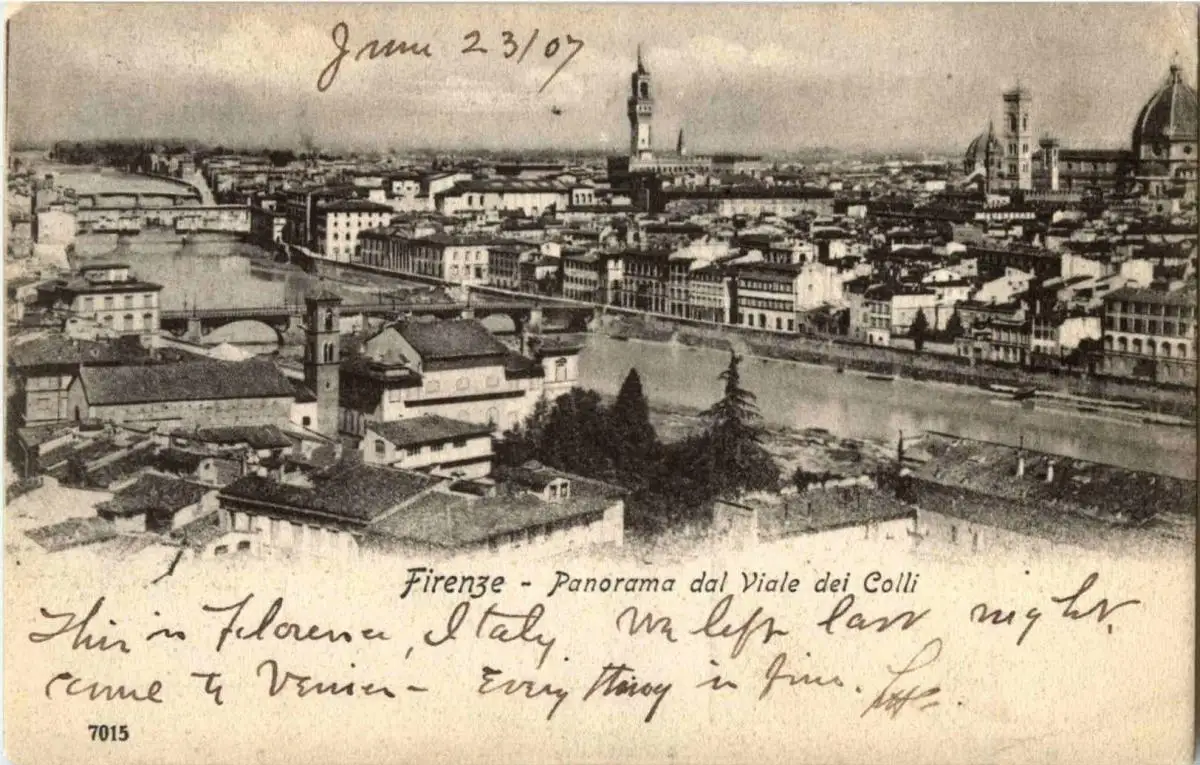 June 23/07
Firenze - Panorama dal Viale dei Colli
This is Florence, Italy We left last night,
came to Venice - Everything is fine.
7015